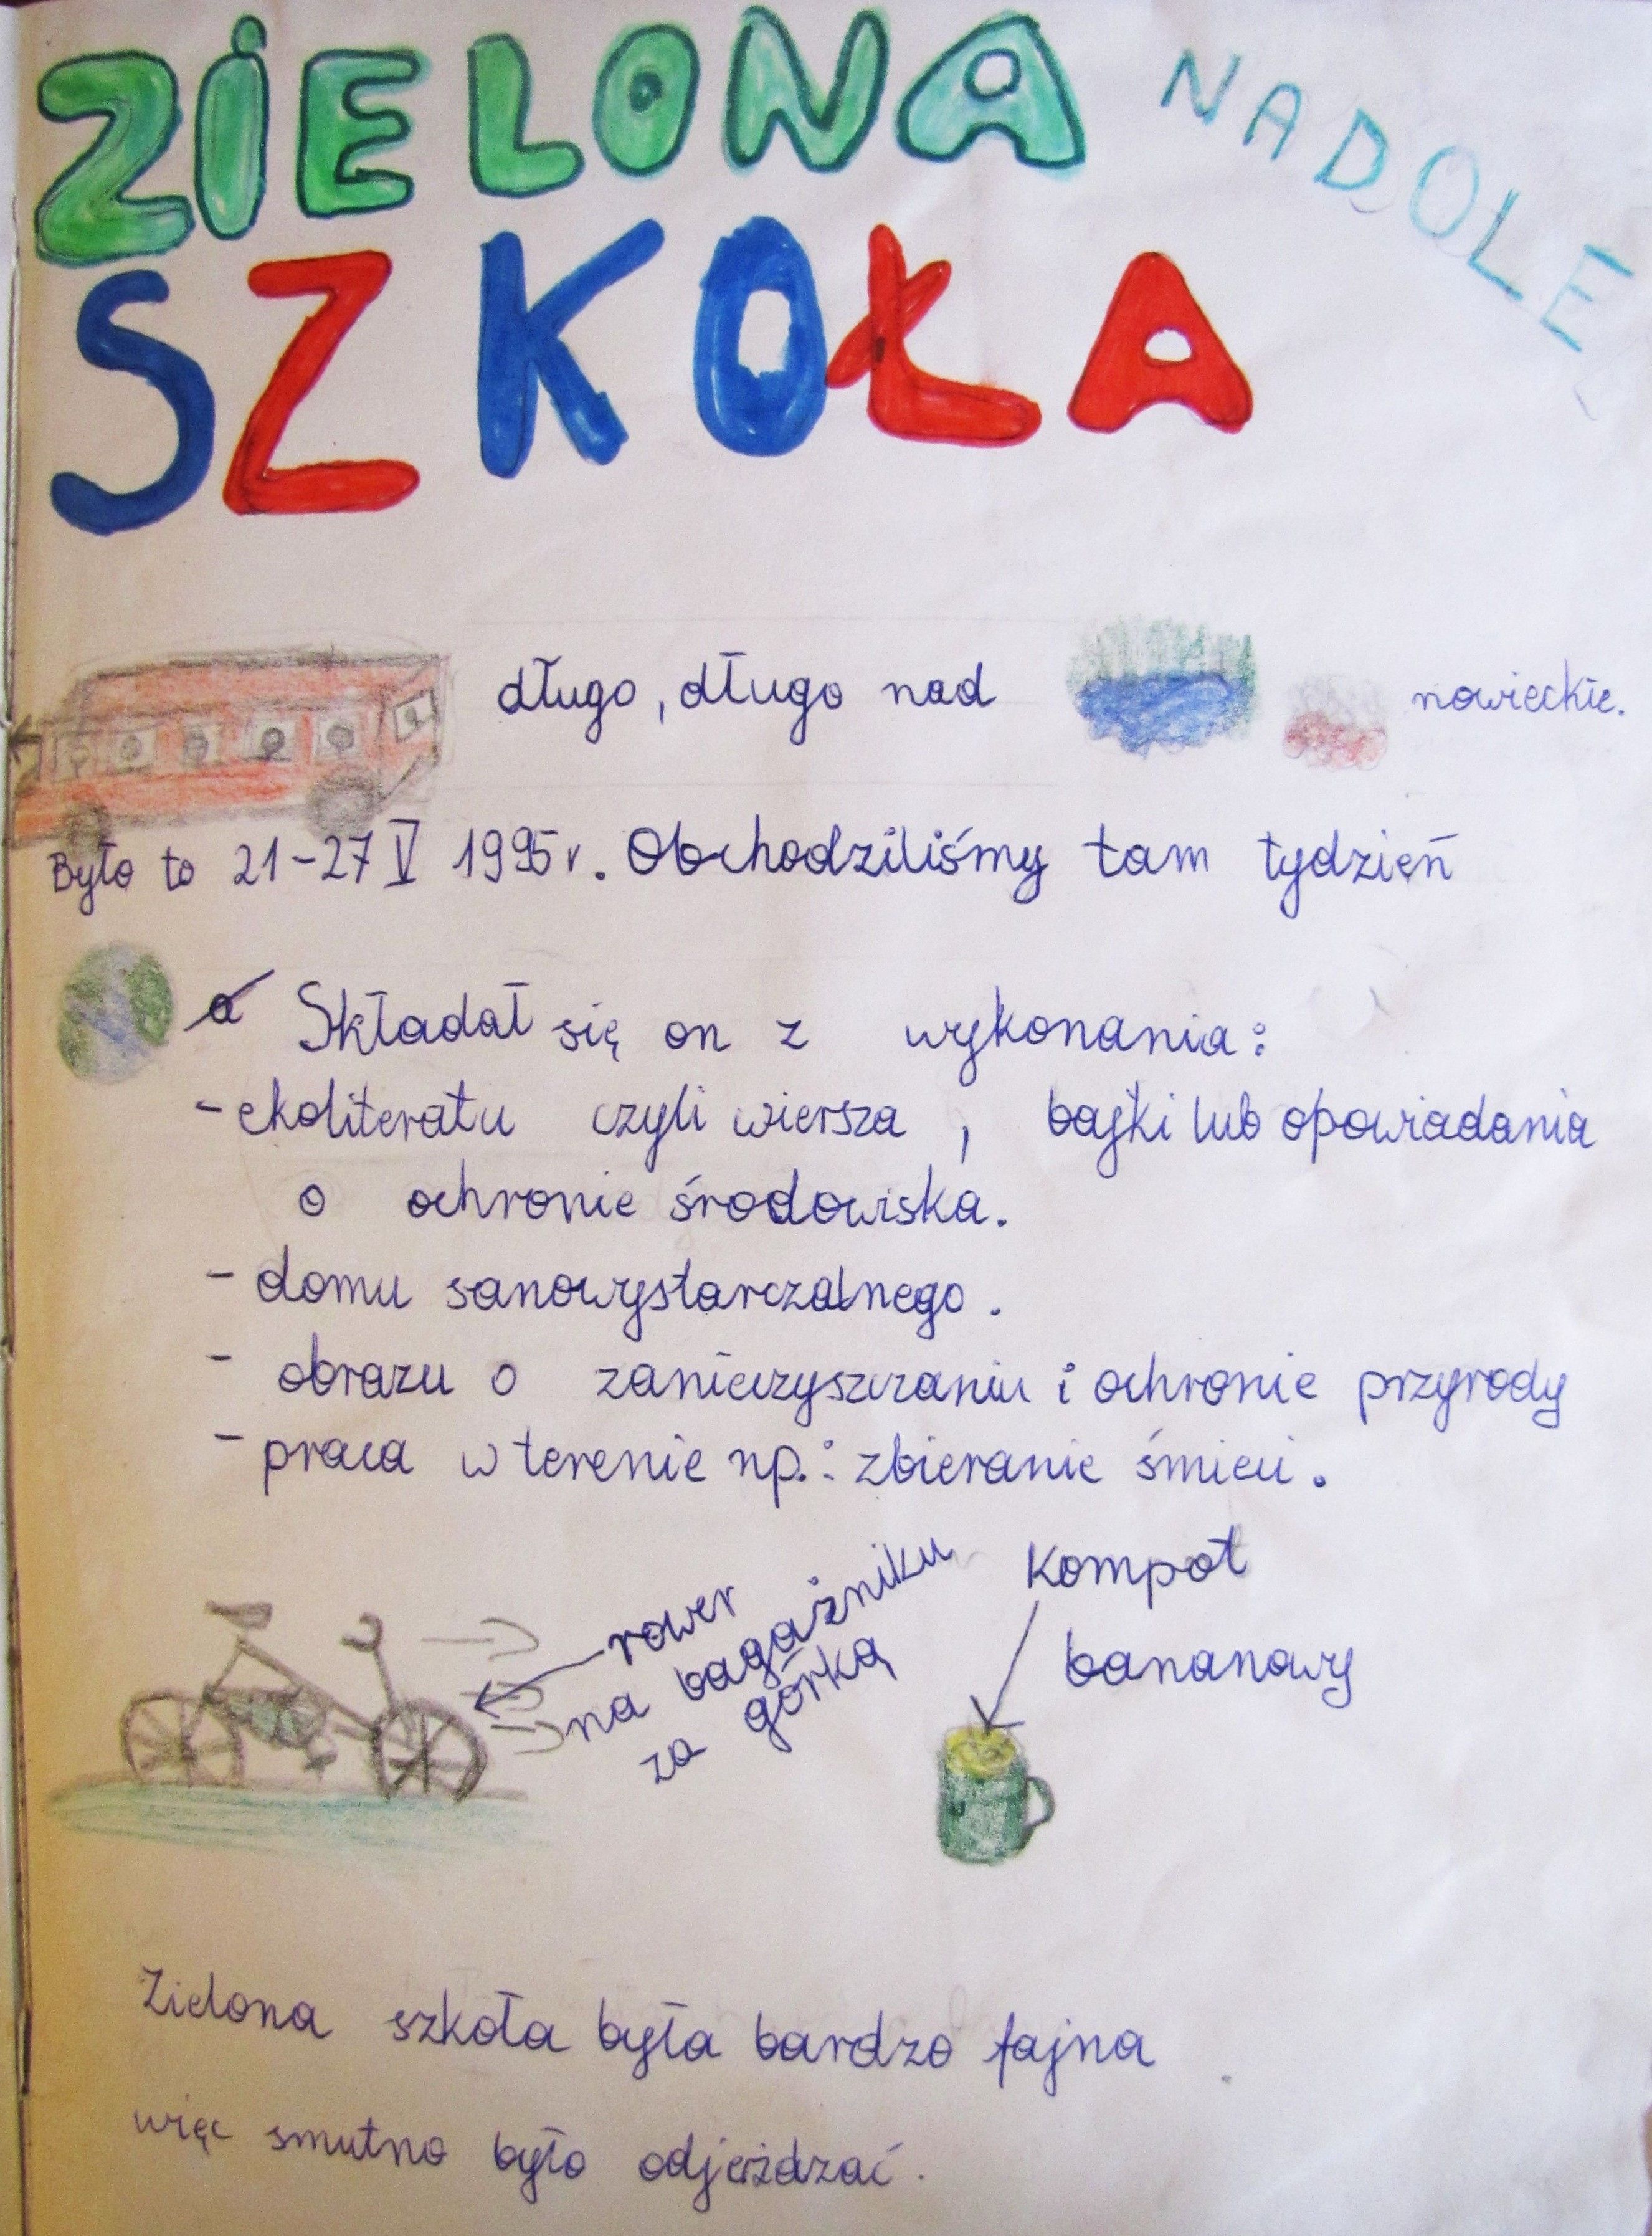 ZIELONA NADOLE
SZKOŁA
długo, długo nad nowieckie.
Było to 21-27 V 1995 r. Obchodziliśmy tam tydzień
Składał się on z wykonania:
- ekoliteratu czyli wiersza , bajki lub opowiadania
o ochronie środowiska.
- domu sanowystarczalnego.
- obrazu o zanieczyszczaniu i ochronie przyrody
- praca w terenie np.: zbieranie śmieci.
rower
na bagażniku
za górką
kompot
bananowy
Zielona szkoła była bardzo fajna
więc smutno było odjeżdzać.